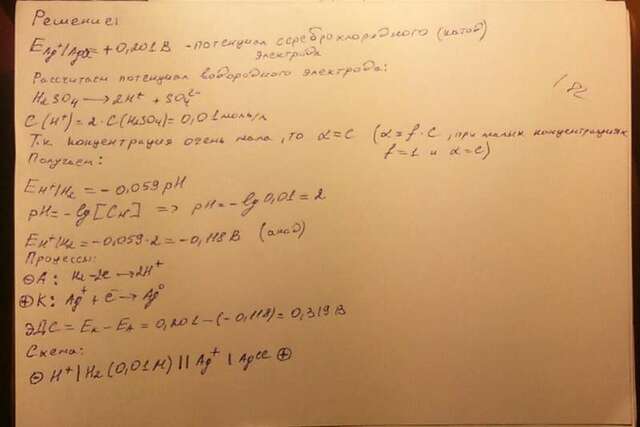 Решение:
E Ag⁺/AgCl = +0,201 В - потенциал сереброхлоридного (катод) электрода
Рассчитаем потенциал водородного электрода:
H₂SO₄ → 2H⁺ + SO₄²⁻
C(H⁺) = 2·C(H₂SO₄) = 0,01 моль/л
Т.к концентрация очень мала, то α=C (α=f·C, при малых концентрациях f=1 и α=C)
Получаем:
E H⁺/H₂ = -0,059 pH
pH = -lg[CH⁺] => pH = -lg 0,01 = 2
E H⁺/H₂ = -0,059·2 = -0,118 В (анод)
Процессы:
⊖ A: H₂ - 2ē → 2H⁺
⊕ K: Ag⁺ + ē → Ag⁰
ЭДС = Eк - Eа = 0,201 - (-0,118) = 0,319 В
Схема:
⊖ H⁺ | H₂ (0,01 М) || Ag⁺ | AgCl ⊕